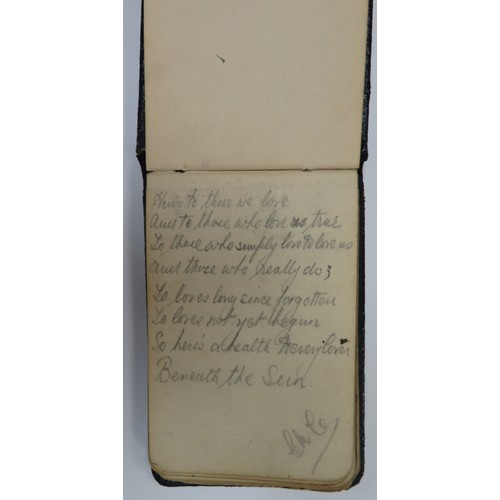 Here's to those we love
And to those who love us, true
To those who simply love to love us
And those who really do;
To loves long since forgotten
To loves not yet begun
So here's a health to every lover
Beneath the Sun.